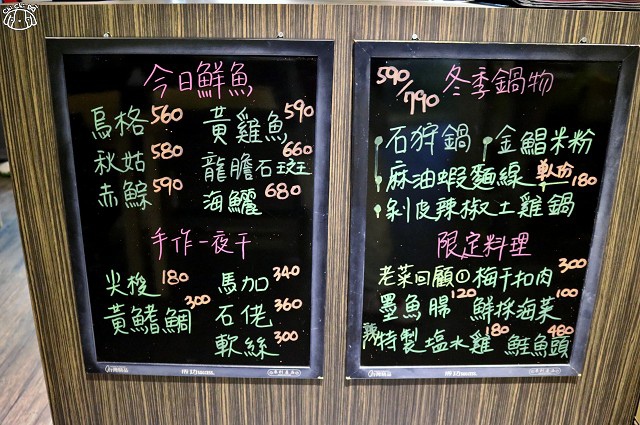 今日鮮魚
烏格 560
黃雞魚 590
秋姑 580
龍膽石斑 660
赤鯮 590
海鱺 680
手作一夜干
尖梭 180
馬加 340
黃鰭鯛 300
石佬 360
軟絲 300
590/790 冬季鍋物
石狩鍋
金鯧米粉
麻油蝦麵線 單份 180
剝皮辣椒土雞鍋
限定料理
老菜回顧① 梅干扣肉 300
墨魚腸 120
鮮採海菜 100
特製塩水雞 180
鮭魚頭 480